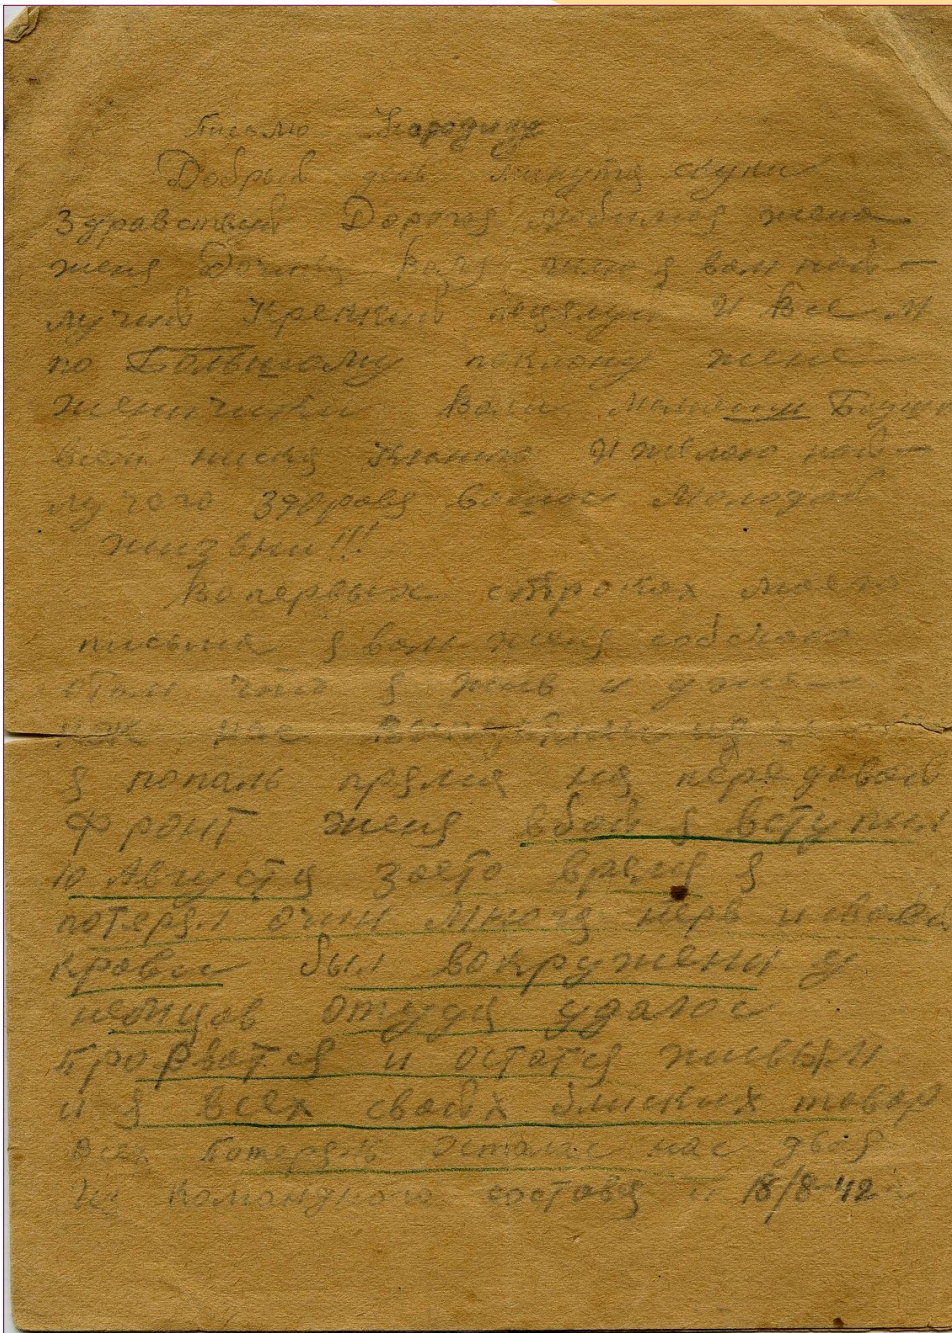 Письмо Народину
Добрый день минута скуки
Здравствуй Дорогая любимая жена
женя Дочка Валя шлю я вам най-
лучий Крепкий поцелуй И Всем
по Большому поклону жене
Вали
всем ниска И желаю най-
лучего здоровя вашой молодой
жизвни!!!
Вопервых строках моего
письма я вам женя собчаю
отом что я жив и
как нас
я попаль прямя на передовой
фронт женя вбой я вступил
10 Августя заето время я
потерял очин многа нерв и своей
крови был вокружени у
немцов отудя удалос
прорватся и остатся живым
и я всех своих близких товар
всех потерял осталос нас двоя
из командного составя и 18/8-42